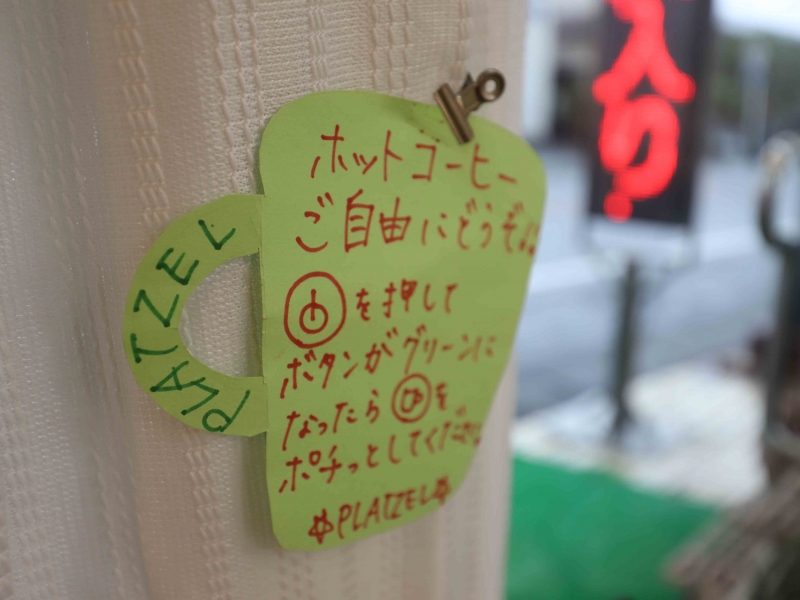 ホットコーヒー
ご自由にどうぞ♪
を押して
ボタンがグリーンに
なったら を
ポチっとしてください
☆PLATZEL☆
PLATZEL
入り